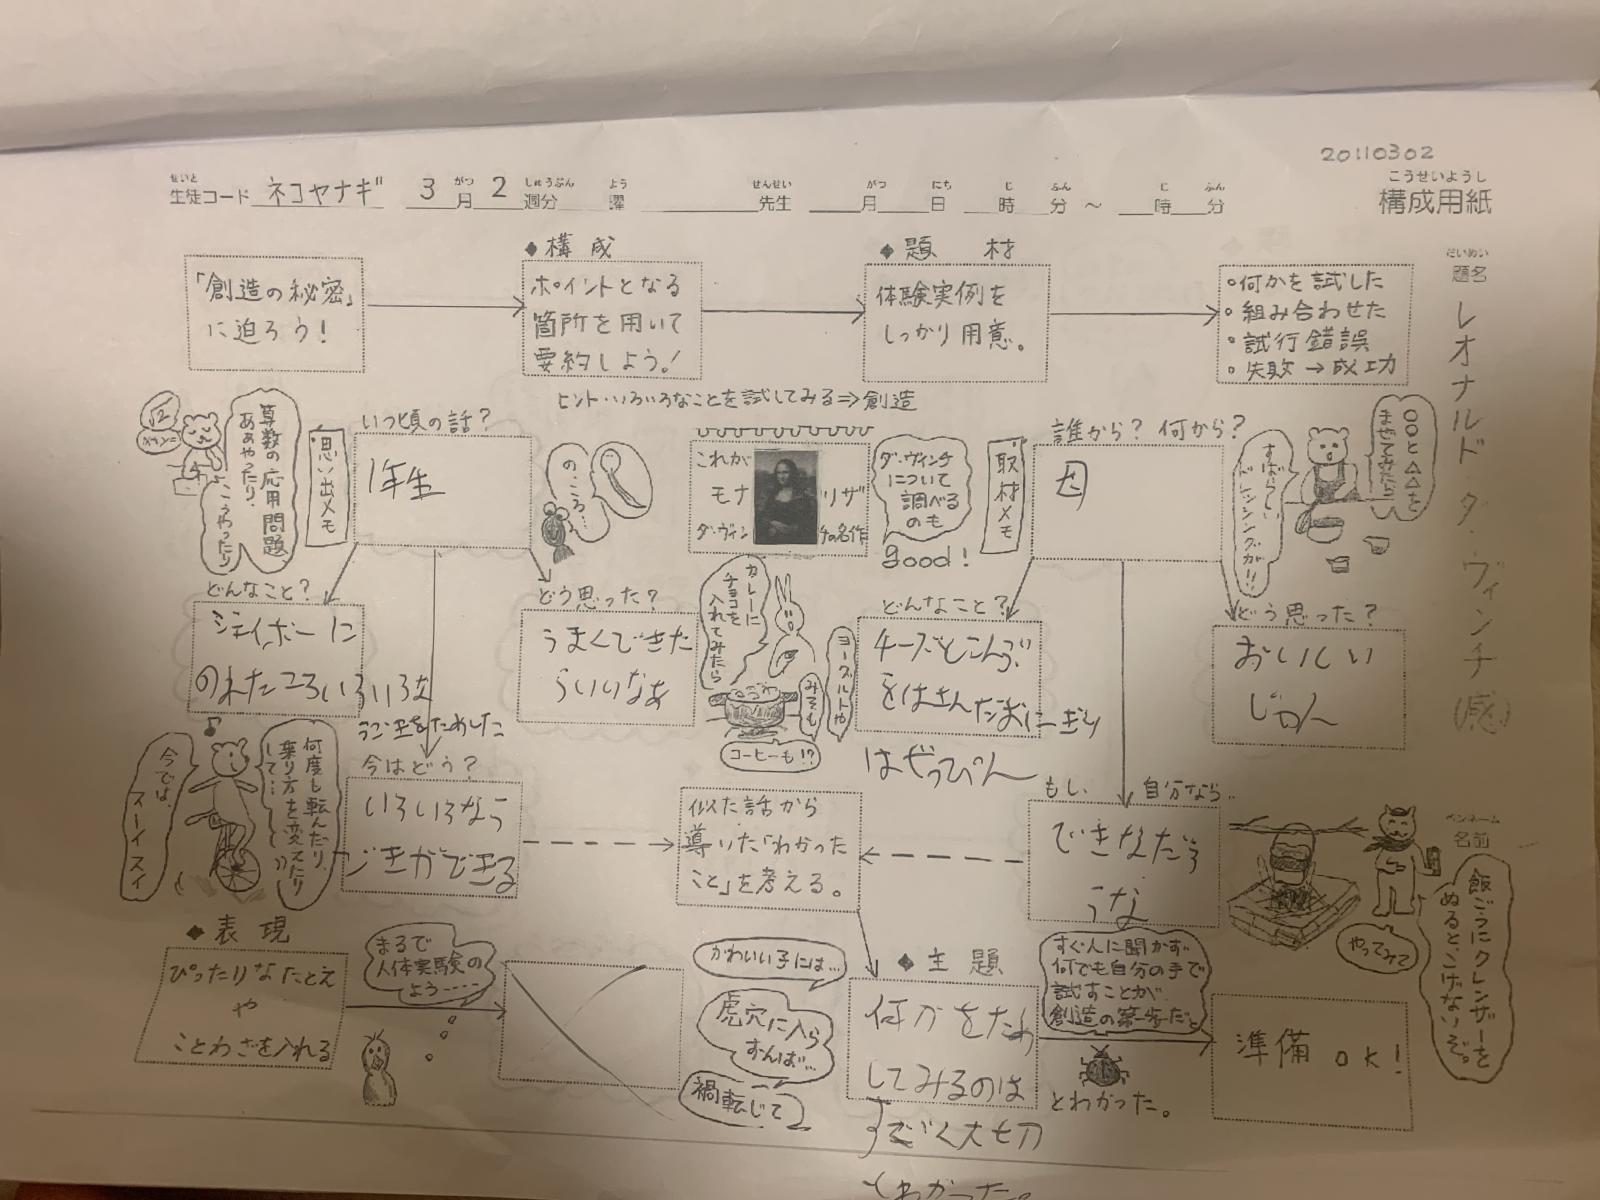 20110302
せいと がつ しゅうぶん よう せんせい がつ にち じ ふん じ ふん こうせいようし
生徒コード ネコヤナギ 3月2週分 曜 先生 月 日 時 分 ~ 時 分 構成用紙
だいめい
題名
レオナルド・ダ・ヴィンチ(感)
ペンネーム
名前
「創造の秘密」
に迫ろう!
◆構成
ポイントとなる
箇所を用いて
要約しよう!
◆題材
体験実例を
しっかり用意。
・何かを試した
・組み合わせた
・試行錯誤
・失敗→成功
ヒント・いろいろなことを試してみる⇒創造
√2
算数の応用問題
ああやったり、
こうやったり
思い出メモ
いつ頃の話?
1年生
の、ころ…
これが
モナ リザ
ダ・ヴィンチの名作
ダ・ヴィンチ
について
調べる
のも
good!
取材メモ
誰から? 何から?
母
〇〇と△△を
まぜてみたら
すばらしい
ドレッシングが!!
どんなこと?
ジェイボーに
のれたころいろいろな
をためした
どう思った?
うまくできた
らいいなあ
カレーに
チョコを
入れてみたら
ヨーグルトや
みそも
コーヒーも!?
どんなこと?
チーズとこんぶ
をはさんだおにぎり
はぜっぴん
どう思った?
おいしい
じゃん
何度も転んだり、
乗り方を変えたり
して…
今では、
スーイスイ
今はどう?
いろいろなう
ごきができる
似た話から
導いた「わかった
こと」を考える。
もし、自分なら…
できなだろ
うな
飯ごうにクレンザーを
ぬると、こげないぞ。
やってみて
◆表現
ぴったりなたとえ
や
ことわざを入れる
まるで
人体実験の
よう‥‥
かわいい子には…
虎穴に入ら
ずんば…
禍転じて
◆主題
何かをため
してみるのは
すごく大切
とわかった。
すぐ人に聞かず、
何でも自分の手で
試すことが、
創造の第一歩だと
とわかった。
準備OK!